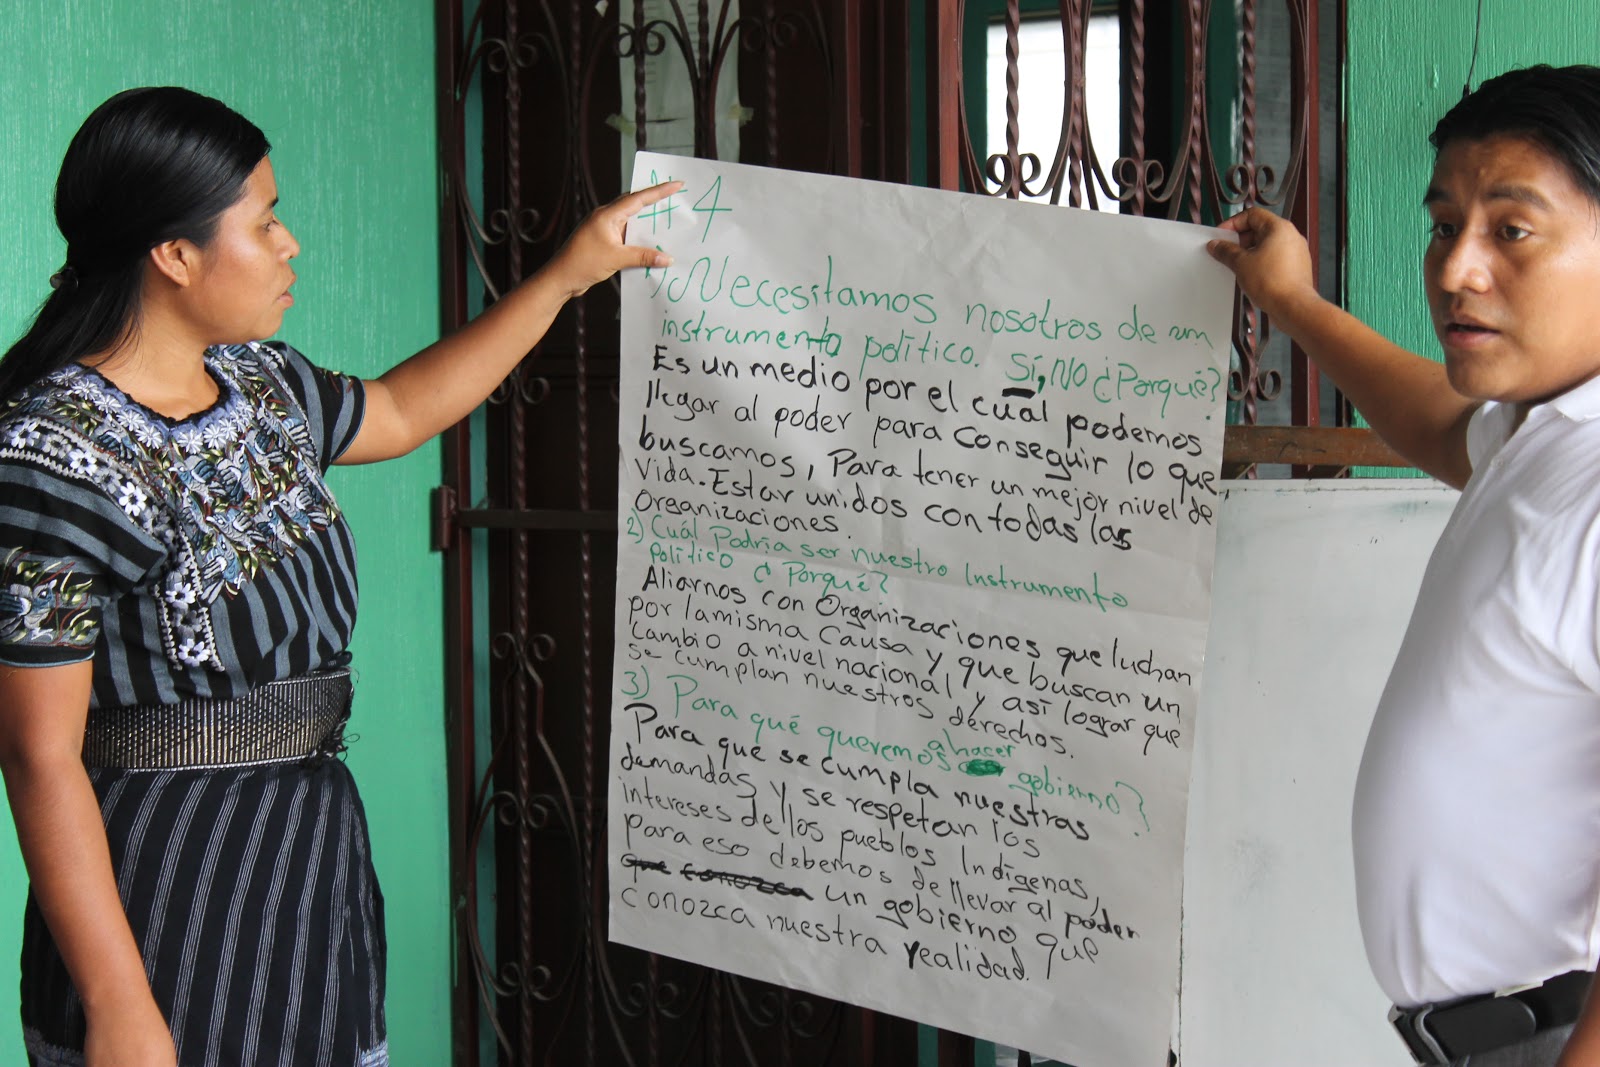 #4
1) Necesitamos nosotros de un
instrumento político. Sí, No ¿Porqué?
Es un medio por el cual podemos
llegar al poder para conseguir lo que
buscamos, Para tener un mejor nivel de
vida. Estar unidos con todas las
Organizaciones.
2) Cuál Podría ser nuestro Instrumento
Político ¿Porqué?
Aliarnos con Organizaciones que luchan
por la misma Causa y que buscan un
Cambio a nivel nacional y así lograr que
se cumplan nuestros derechos.
3) Para qué queremos a hacer gobierno?
Para que se cumpla nuestras
demandas y se respetan los
intereses de llos pueblos Indígenas,
para eso debemos de llevar al poder
que conozca un gobierno que
conozca nuestra realidad.